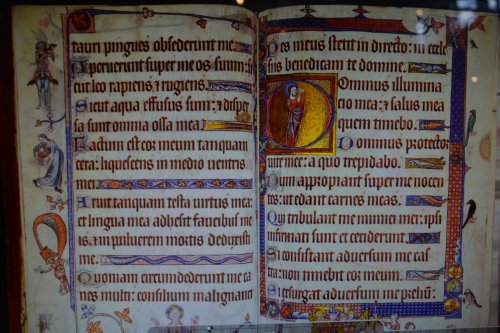 tauri pingues obsederunt me.
Aperuerunt super me os suum: si
cut leo rapiens & rugiens.
Sicut aqua effusus sum: & disper
sa sunt omnia ossa mea.
Factum est cor meum tanquam
cera: liquescens in medio ventris
mei.
Aruit tanquam testa virtus mea:
et lingua mea adhesit faucibus me
is. in pulverem mortis deduxisti
me.
Quoniam circumdederunt me ca
nes multi: consilium malignanci
Pes meus stetit in directo: in eccle
siis benedicam te domine.
Dominus illumina
cio mea: & salus mea
quem timebo.
Dominus protector
vite mee: a quo trepidabo.
Dum appropiant super me nocen
tes: ut edant carnes meas.
Qui tribulant me inimici mei: ipsi
infirmati sunt et ceciderunt.
Si consistant adversum me cas
tra: non timebit cor meum.
Si exsurgat adversum me preliū: